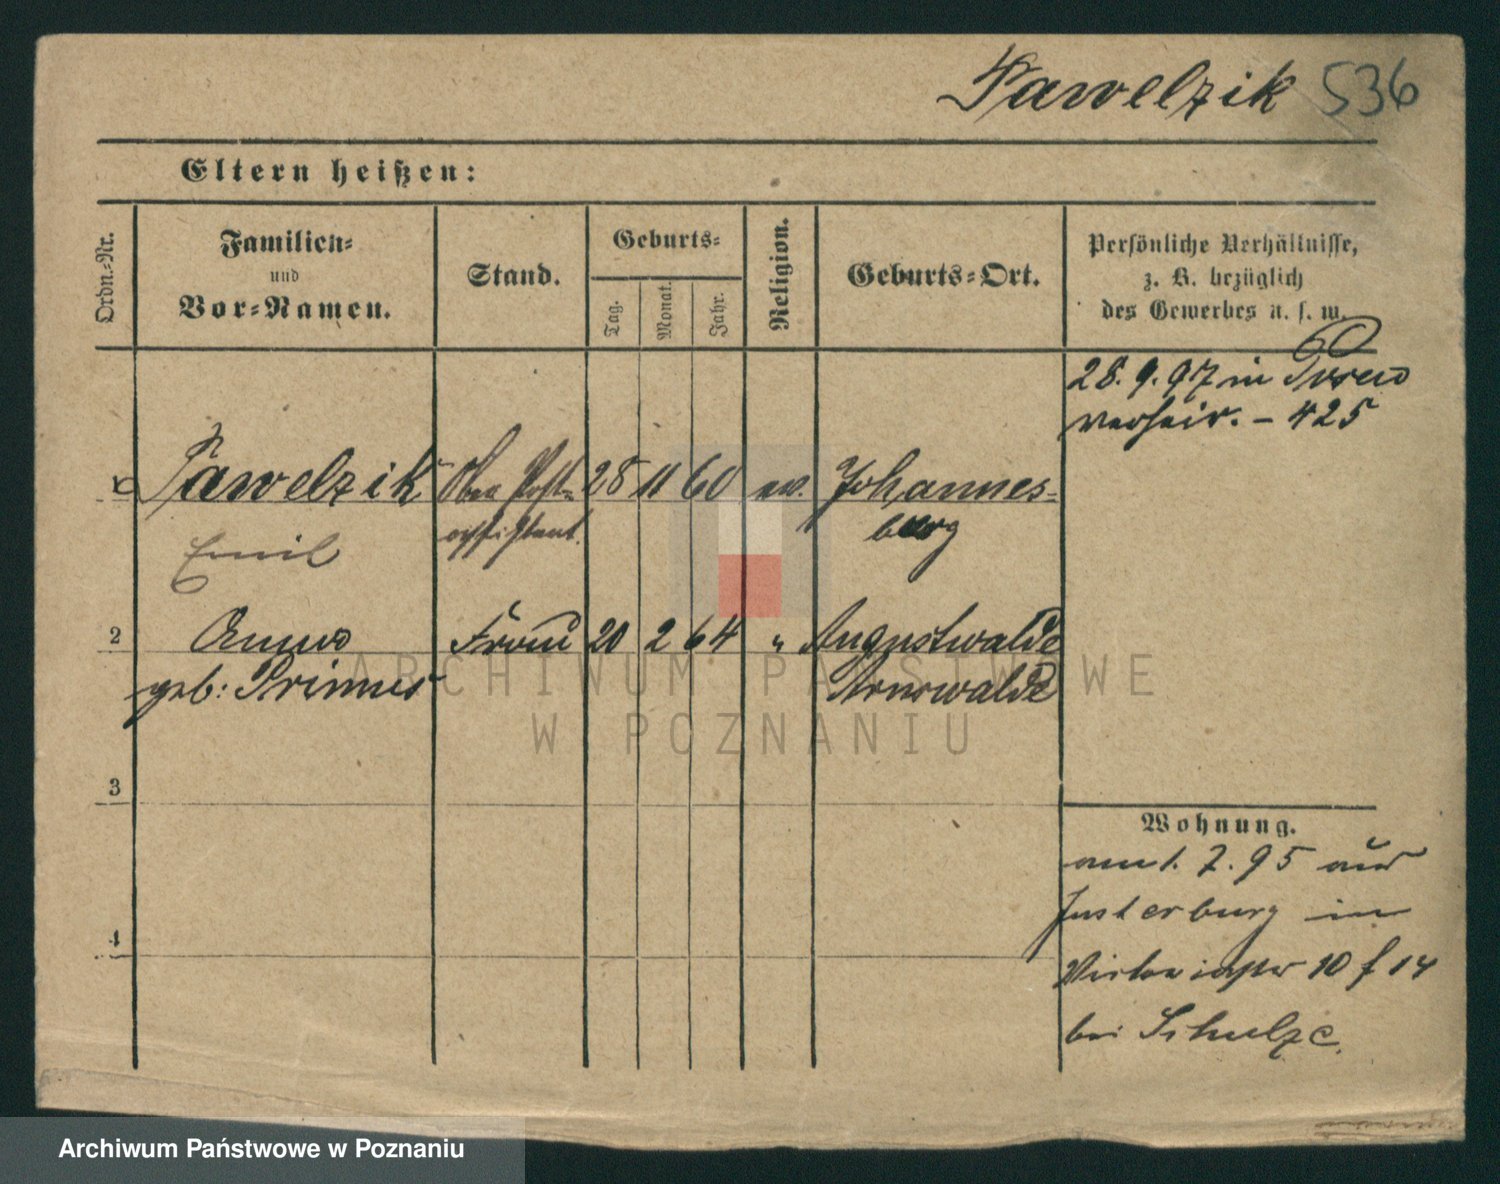 Pawelzik 536
Eltern heißen:
Ordn.-Nr.
Familien-
und
Vor-Namen.
Stand.
Geburts-
Tag.
Monat.
Jahr.
Religion.
Geburts-Ort.
Persönliche Verhältnisse,
z. B. bezüglich
des Gewerbes u. s. w.
28.9.97 in Posen
verheir. - 425
Pawelzik Ober Post- 28 11 60 ev. Johannes-
Emil assistent. burg
2 Anna Frau 20 2 64 " Augustwalde
geb: Primus Arnswalde
3
Wohnung.
am 1.7.95 aus
Insterburg in
Victoriastr 10 f 14
bei Schulze.
4
ARCHIWUM PAŃSTWOWE
W POZNANIU
Archiwum Państwowe w Poznaniu